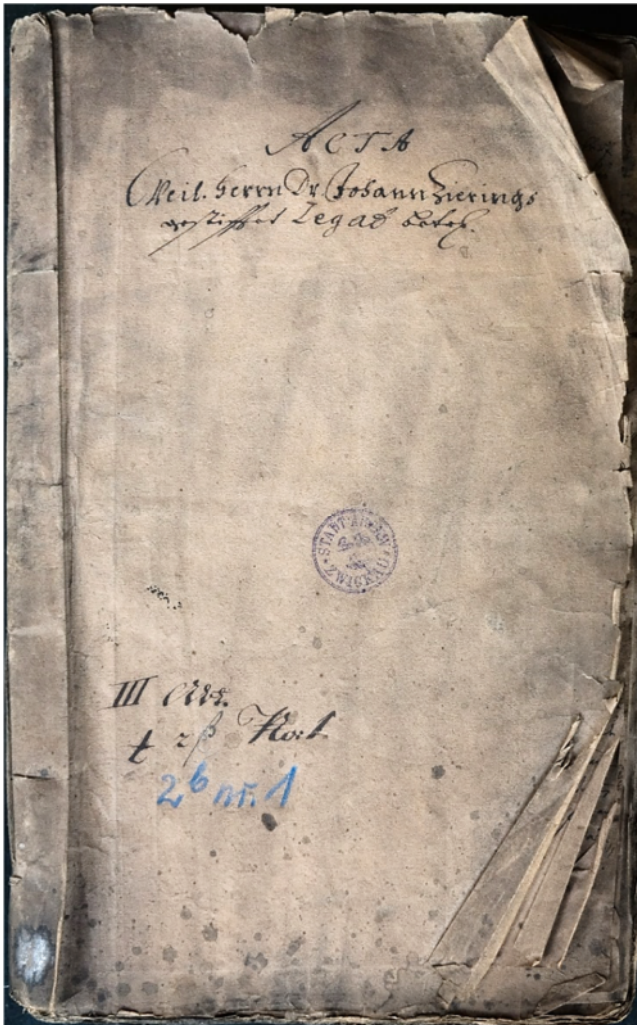 ACTA
Weil. Herrn Dr. Johann Zierings
gestifftet Legat betrf.
STADTARCHIV
ZWICKAU
III
2 b nr. 1